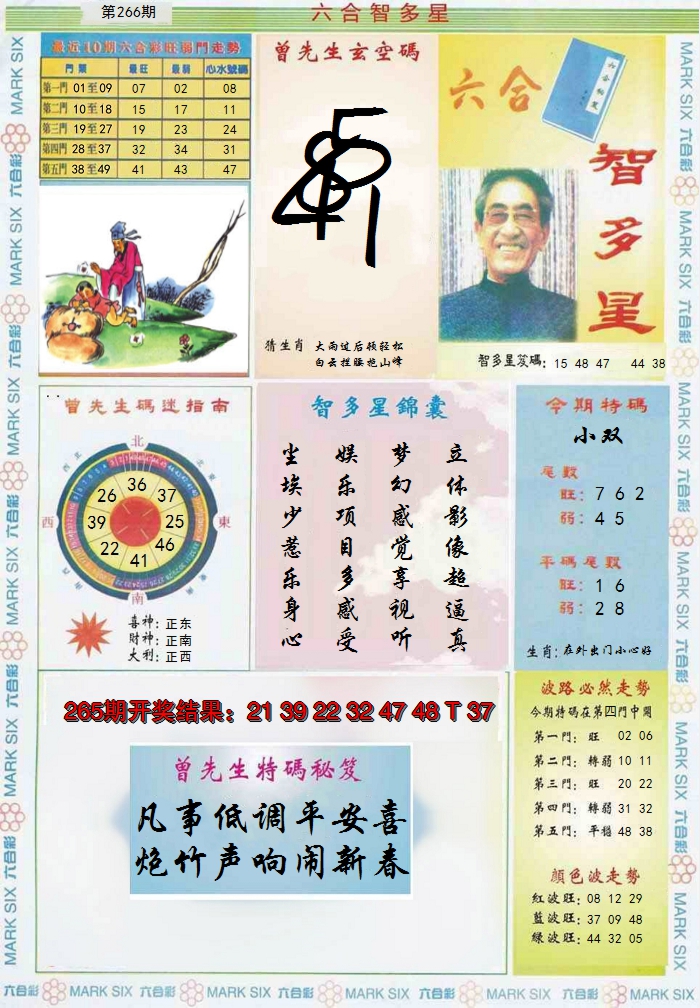 第266期
六合智多星
最近10期六合彩旺弱門走勢
門 類 最旺 最弱 心水號碼
第一門 01至09 07 02 08
第二門 10至18 15 17 11
第三門 19至27 19 23 24
第四門 28至37 32 34 31
第五門 38至49 41 43 47
曾先生玄空碼
猜生肖 大雨过后顿轻松
白云拦腰抱山峰
六合
智多星
智多星笈碼: 15 48 47 44 38
曾先生碼迷指南
北
西北
東北
西
東
36
26 37
39 25
22 46
41
南
喜神: 正东
財神: 正南
大利: 正西
智多星錦囊
立体影像超逼真
梦幻感觉享视听
娱乐项目多感受
尘埃少惹乐身心
今期特碼
小双
尾數
旺: 7 6 2
弱: 4 5
平碼尾數
旺: 1 6
弱: 2 8
生肖: 在外出门小心好
265期开奖结果: 21 39 22 32 47 48 T 37
曾先生特碼秘笈
凡事低调平安喜
炮竹声响闹新春
波路必然走勢
今期特碼在第四門中開
第一門: 旺 02 06
第二門: 轉弱 10 11
第三門: 旺 20 22
第四門: 轉弱 31 32
第五門: 平穩 48 38
顔色波走勢
紅波旺: 08 12 29
藍波旺: 37 09 48
綠波旺: 44 32 05
MARK SIX 六合彩